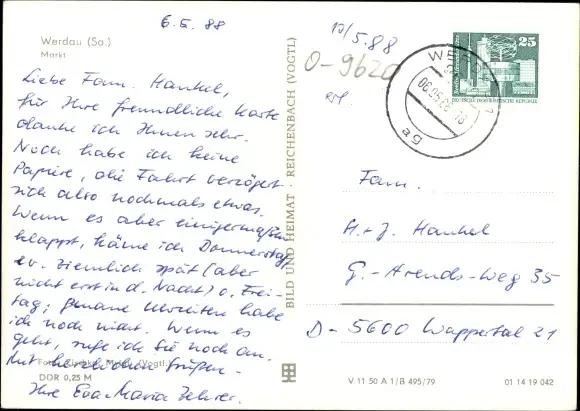 6.5.88
Werdau (Sa.)
Markt
Liebe Fam. Hankel,
für Ihre freundliche Karte
danke ich Ihnen sehr.
Noch habe ich keine
Papiere, die Fahrt verzögert
sich also nochmals etwas.
Wenn es aber einigermaßen
klappt, käme ich Donnerstag
ev. ziemlich spät (aber
nicht erst in d. Nacht) o. Frei-
tag; genaue Uhrzeiten habe
ich noch nicht. Wenn es
geht, rufe ich Sie noch an.
Mit herzlichen Grüßen
(Vogtl.)
DDR 0,25 M
Ihre Eva-Maria Zehrer.
BILD UND HEIMAT · REICHENBACH (VOGTL)
/5.88
O-9620
25
DEUTSCHE DEMOKRATISCHE REPUBLIK
06.05.88
ag
Fam.
H.+J. Hankel
G.-Arends-Weg 35
D-5600 Wuppertal 21
V 11 50 A 1/B 495/79
01 14 19 042